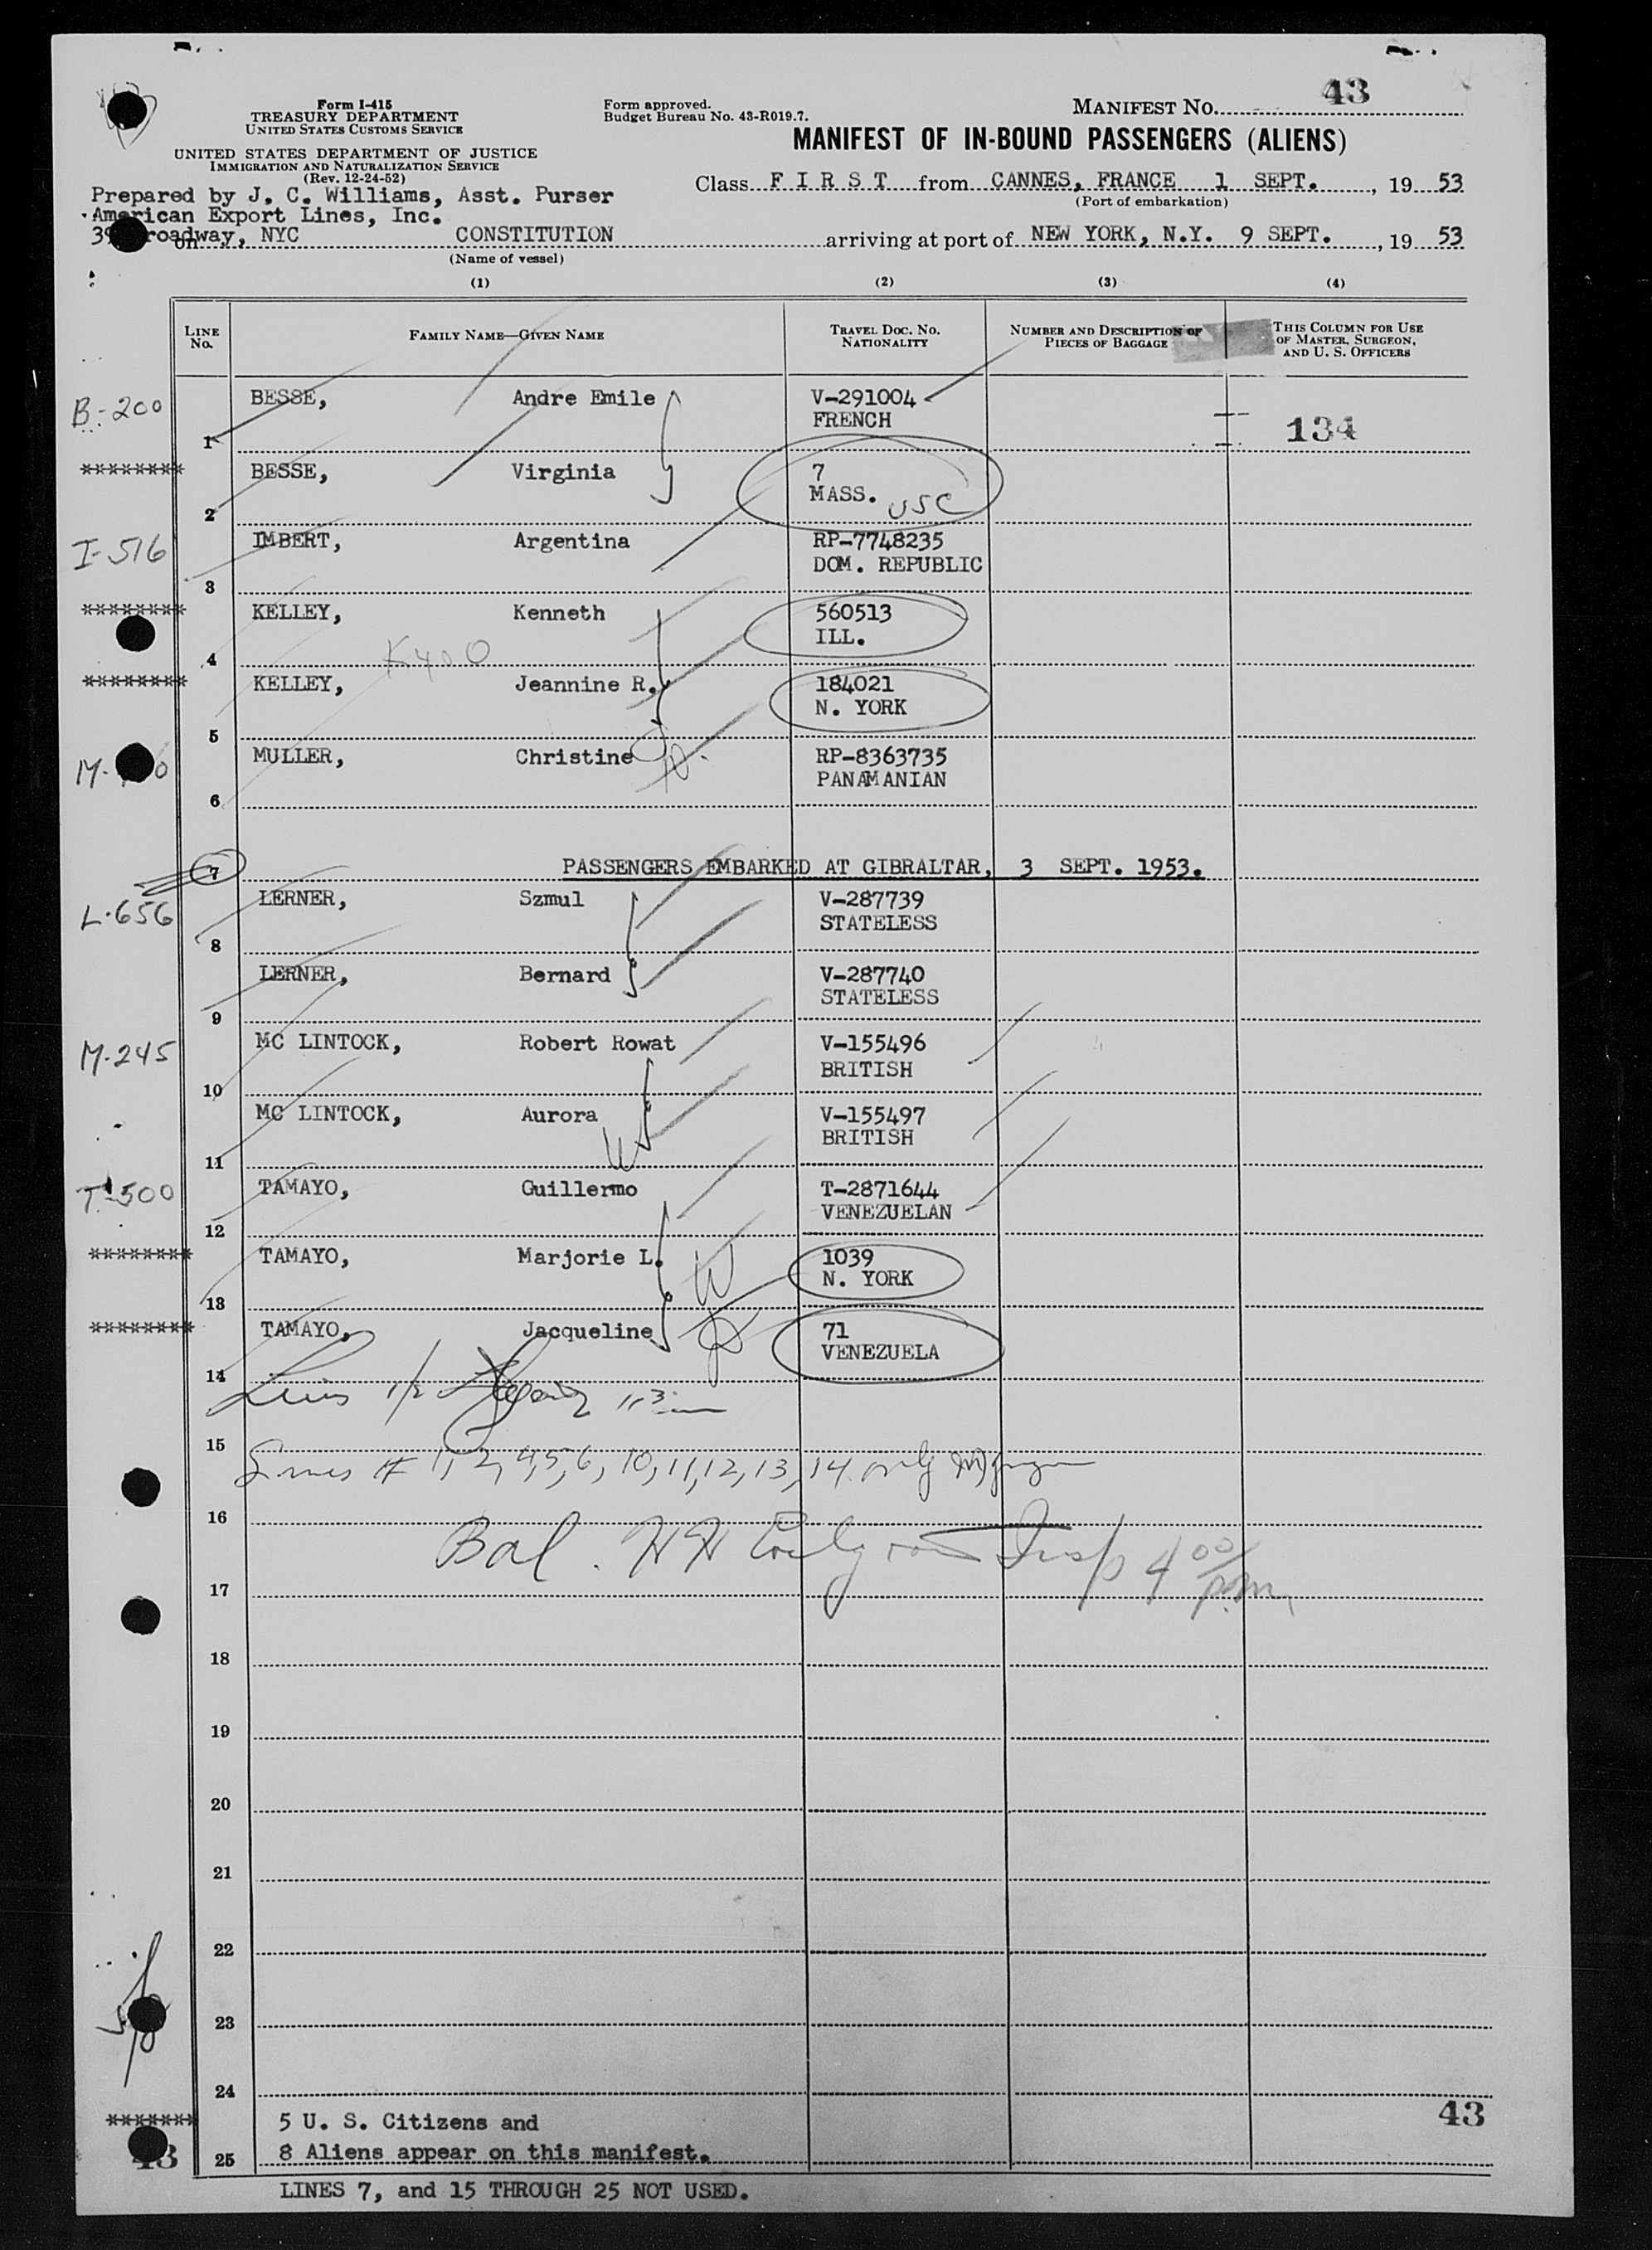 Form I-415
TREASURY DEPARTMENT
UNITED STATES CUSTOMS SERVICE
UNITED STATES DEPARTMENT OF JUSTICE
IMMIGRATION AND NATURALIZATION SERVICE
(Rev. 12-24-52)
Form approved.
Budget Bureau No. 43-R019.7.
MANIFEST NO. 43
MANIFEST OF IN-BOUND PASSENGERS (ALIENS)
Class F I R S T from CANNES, FRANCE 1 SEPT., 19 53
(Port of embarkation)
Prepared by J. C. Williams, Asst. Purser
American Export Lines, Inc.
39 Broadway, NYC
on CONSTITUTION arriving at port of NEW YORK, N.Y. 9 SEPT., 19 53
(Name of vessel)
(1) (2) (3) (4)
LINE No. FAMILY NAME—GIVEN NAME TRAVEL DOC. NO. NATIONALITY NUMBER AND DESCRIPTION OF PIECES OF BAGGAGE THIS COLUMN FOR USE OF MASTER, SURGEON, AND U. S. OFFICERS
B-200 BESSE, Andre Emile V-291004
1 FRENCH 134
******** BESSE, Virginia 7
2 MASS. USC
I-516 IMBERT, Argentina RP-7748235
3 DOM. REPUBLIC
******** KELLEY, Kenneth 560513
4 K400 ILL.
******** KELLEY, Jeannine R. 184021
5 N. YORK
MULLER, Christine RP-8363735
6 PANAMANIAN
7 PASSENGERS EMBARKED AT GIBRALTAR, 3 SEPT. 1953.
L-656 LERNER, Szmul V-287739
8 STATELESS
LERNER, Bernard V-287740
9 STATELESS
M-245 MC LINTOCK, Robert Rowat V-155496
10 BRITISH
MC LINTOCK, Aurora V-155497
11 BRITISH
T-500 TAMAYO, Guillermo T-2871644
12 VENEZUELAN
******** TAMAYO, Marjorie L. 1039
13 N. YORK
******** TAMAYO, Jacqueline 71
14 VENEZUELA
15
Lines # 1, 2, 4, 5, 6, 10, 11, 12, 13, 14 only
16
Bal. Insp 4 00 p.m.
17
18
19
20
21
22
23
24
******* 5 U. S. Citizens and 43
43 25 8 Aliens appear on this manifest.
LINES 7, and 15 THROUGH 25 NOT USED.